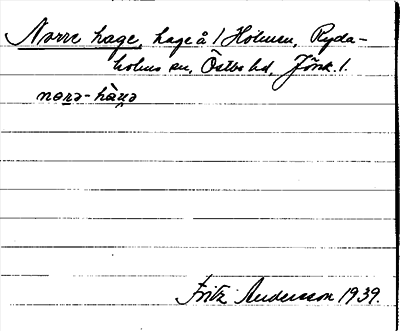 Norre hage, hage å 1 Holmen, Ryda-
holms sn, Östbo hd, Jönk. l.
Fritz Andersson 1939.